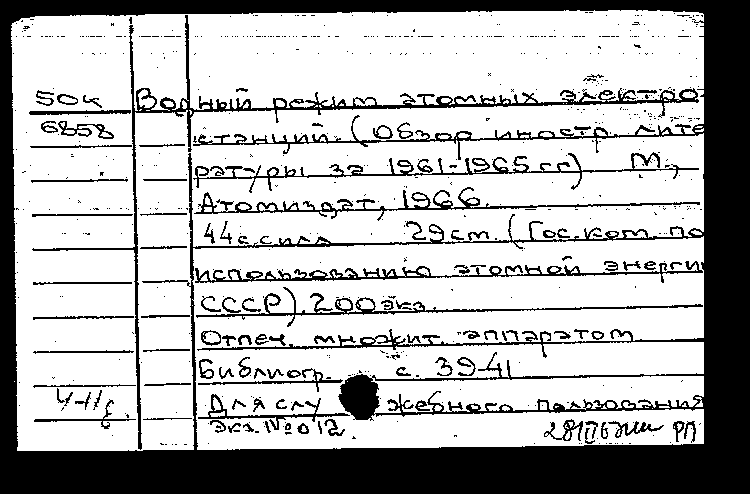 50к Водный режим атомных электро-
6858 станций. (Обзор иностр. лите
ратуры за 1961-1965 гг) М.,
Атомиздат, 1966.
44 с. силл 29 см. (Гос. ком. по
использованию атомной энергии
СССР). 200 экз.
Отпеч. множит. аппаратом
Библиогр. с. 39-41
Для служебного пользования
Экз. № 012.
РП